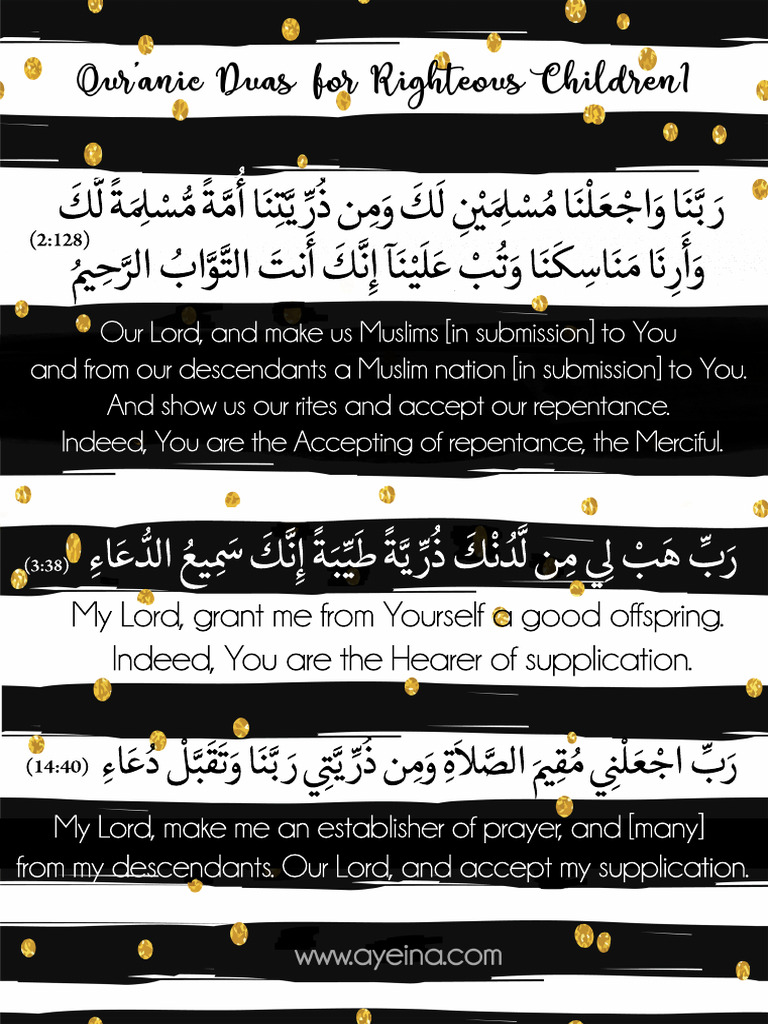 Qur'anic Duas for Righteous Children 1
رَبَّنَا وَاجْعَلْنَا مُسْلِمَيْنِ لَكَ وَمِن ذُرِّيَّتِنَا أُمَّةً مُّسْلِمَةً لَّكَ
(2:128)
وَأَرِنَا مَنَاسِكَنَا وَتُبْ عَلَيْنَآ إِنَّكَ أَنتَ التَّوَّابُ الرَّحِيمُ
Our Lord, and make us Muslims [in submission] to You
and from our descendants a Muslim nation [in submission] to You.
And show us our rites and accept our repentance.
Indeed, You are the Accepting of repentance, the Merciful.
رَبِّ هَبْ لِي مِن لَّدُنْكَ ذُرِّيَّةً طَيِّبَةً إِنَّكَ سَمِيعُ الدُّعَاءِ (3:38)
My Lord, grant me from Yourself a good offspring.
Indeed, You are the Hearer of supplication.
رَبِّ اجْعَلْنِي مُقِيمَ الصَّلاَةِ وَمِن ذُرِّيَّتِي رَبَّنَا وَتَقَبَّلْ دُعَاءِ (14:40)
My Lord, make me an establisher of prayer, and [many]
from my descendants. Our Lord, and accept my supplication.
www.ayeina.com